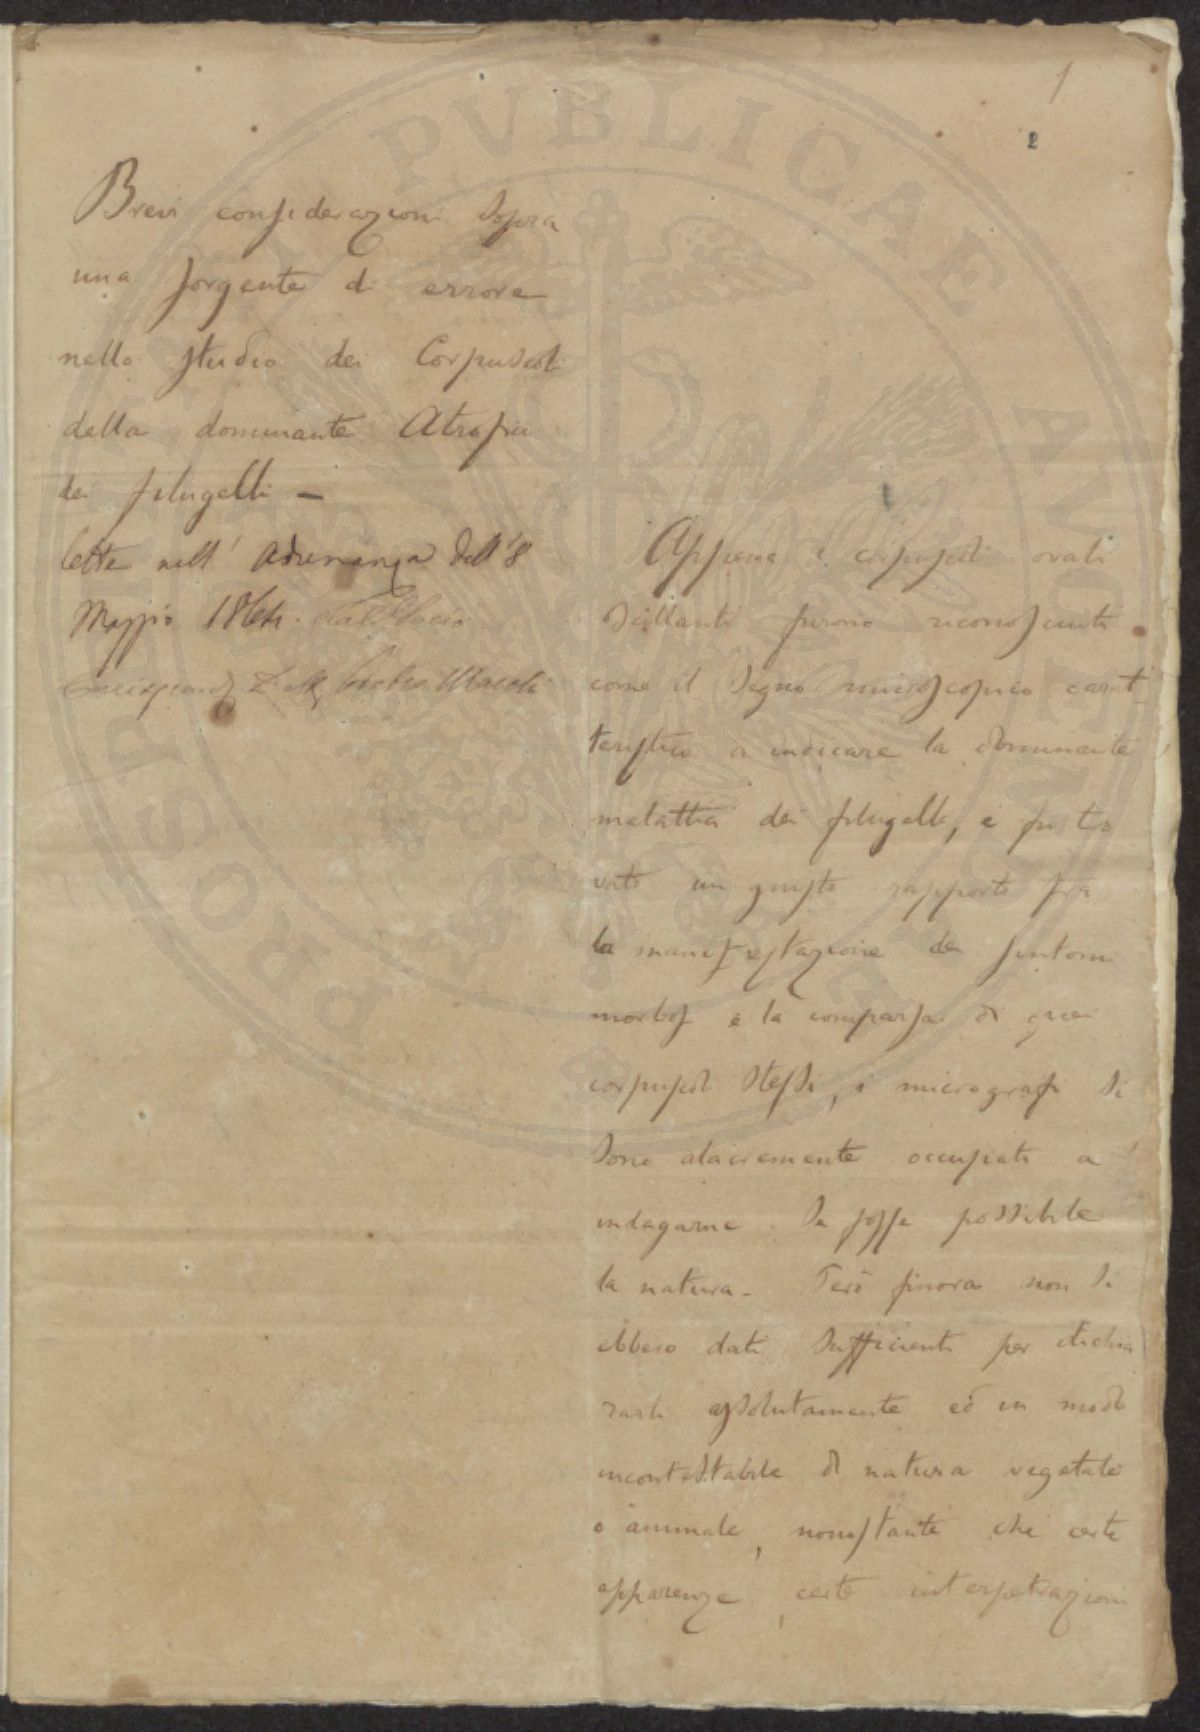 1
2
Brevi considerazioni sopra
una sorgente di errore
nello studio dei Corpuscoli
della dominante Atrofia
dei filugelli –
lette nell' Adunanza dell' 8
Maggio 1864. dal Socio
Pietro
Appena i corpuscoli ovali
scillanti furono riconosciuti
come il segno microscopico carat-
teristico a indicare la dominante
malattia dei filugelli, e fu tro
vato un giusto rapporto fra
la manifestazione dei sintomi
morbosi e la comparsa di quei
corpuscoli stessi, i micrografi si
sono alacremente occupati a
indagarne se fosse possibile
la natura. Però finora non si
ebbero dati sufficienti per dichia
rarli assolutamente ed in modo
incontestabile di natura vegetale
o animale, nonostante che certe
apparenze, certe interpetrazioni
PROSPERITATI PVBLICAE AVGENDAE